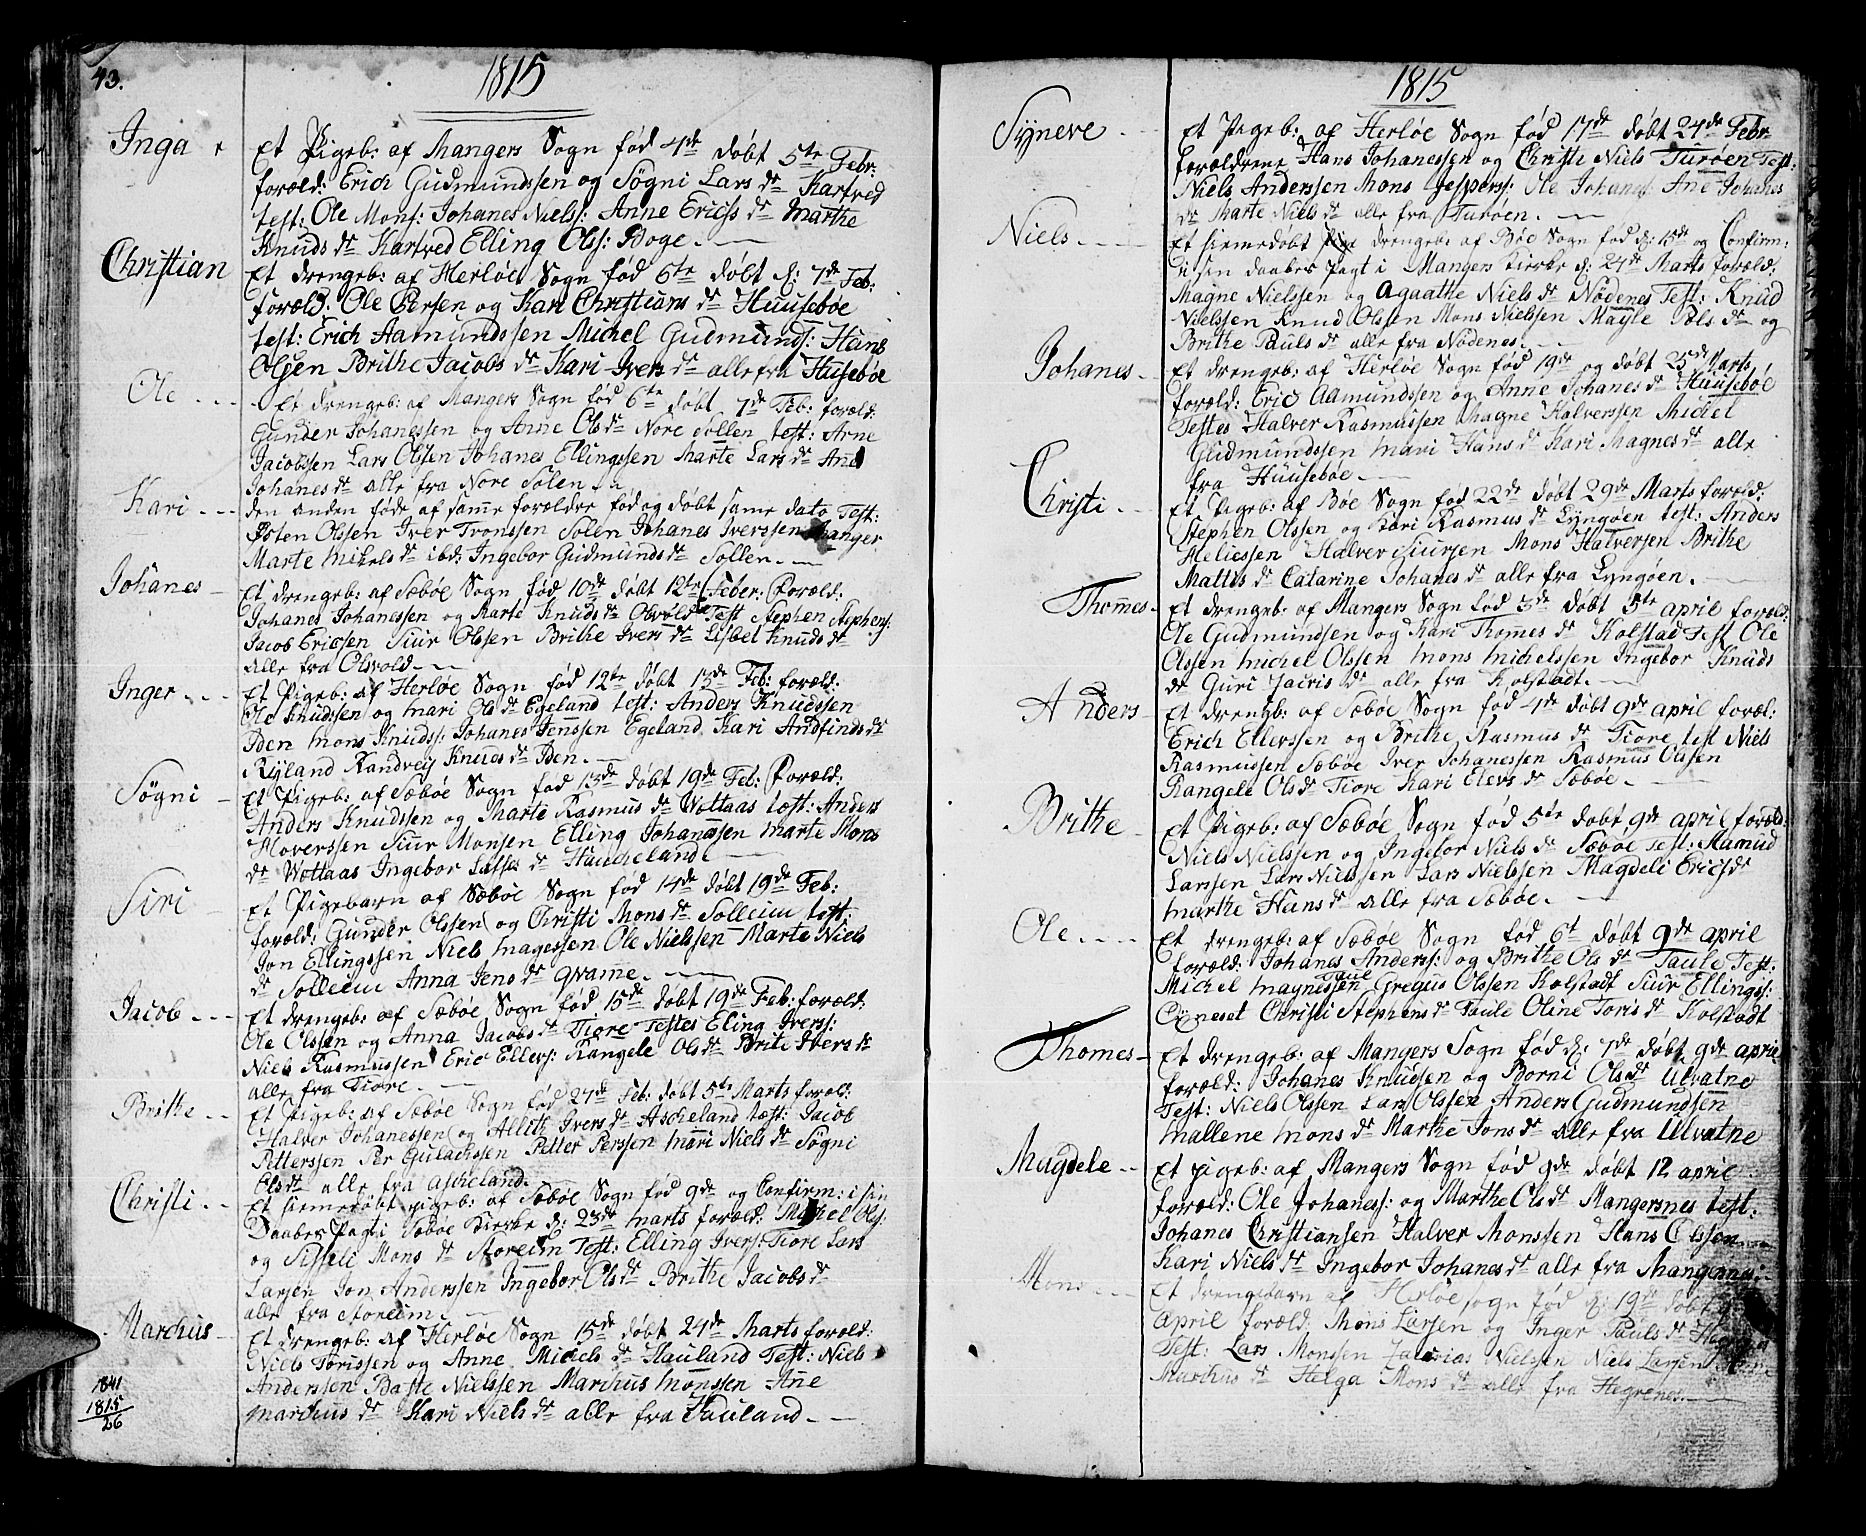 43.
1815
Inga
Et Pigeb: af Mangers Sogn fød 4de døbt 5te Febr:
foræld: Erich Gudmundssen og Søgni Lars dr Kartved
test: Ole Mons: Johanes Nielss: Anne Ericss dr Marthe
Knuds dr Kartved Elling Olss: Boge.
Christian
Et drengeb: af Herløe Sogn fød 6te døbt d: 7de Feb:
foræld: Ole Persen og Kari Christians dr Huusebøe
test: Erich Aamundssen Michel Gudmunds: Hans
Olsen Brithe Jacobs dr Kari Ivers dr alle fra Husebøe
Ole
Et drengeb: af Mangers Sogn fød 6te døbt 7de Feb: foræld:
Gunder Johanessen og Anne Ols dr Nore Sollen test: Arne
Jacobssen Lars Olssen Johanes Ellingssen Marte Lars dr Ane
Johanes dr alle fra Nore Solen
Kari
den anden føde af samme forældre fød og døbt same dato Test:
Østen Olssen Iver Tronssen Solen Johanes Iverssen Manger
Marte Mikels dr ibd: Ingebor Gudmunds dr Sollen.
Johanes
Et drengeb: af Sæbøe Sogn fød 10de døbt 12te Feber: Foræld:
Johanes Johanessen og Marte Knuds dr Olsvold Test Stephen Stephens:
Jacob Ericsen Siur Olssen Brithe Ivers dr Lisbet Knuds dr
alle fra Olsvold
Inger
Et Pigeb: af Herløe Sogn fød 12te døbt 13de Feb: foræld:
Ole Knudssen og Mari Ols dr Egeland test: Anders Knudssen
Iden Mons Knudss: Johanes Jenssen Egeland Kari Andfinds dr
Ryland Randvey Knuds dr Iden.
Søgni
Et Pigeb: af Sæbøe Sogn fød 13de døbt 19de Feb: Foræld:
Anders Knudssen og Marte Rasmus dr Wottaas test: Anders
Hoverssen Siur Monsen Elling Johanessen Marte Mons
dr Wottaas Ingebor Lasses dr Haucheland.
Siri
Et Pigebarn af Sæbøe Sogn fød 14de døbt 19de Feb:
foræld: Gunder Olssen og Christi Mons dr Solleim test:
Jon Ellingssen Niels Magnssen Ole Nielssen Marte Niels
dr Solleim Anna Jens dr Qvamme.
Jacob
Et drengeb: af Sæbøe Sogn fød 15de døbt 19de Feb: foræld:
Ole Olssen og Anna Jacobs dr Tiore Testes Eling Iverss:
Niels Rasmussen Eric Ellers: Rangele Ols dr Brite Ivers dr
alle fra Tiore.
Brithe
Et Pigeb: af Sæbøe Sogn fød 27de Feb: døbt 5te Marts foræld:
Halver Johanessen og Allitz Ivers dr Ascheland test: Jacob
Petterssen Per Gulachssen Petter Perssen Mari Niels dr Søgni
Els dr alle fra Ascheland.
Christi
Et hiemedøbt pigeb: af Sæbøe Sogn fød 9de og Confirm: i sin
Daabes Pagt i Sæbøe Kirke d: 23de Marts foræld: Michel Ols:
og Sisseli Mons dr Storeim Test: Elling Ivers: Tiore Lars
Larsen Jon Anderssen Ingebor Ols dr Brithe Jacobs dr
alle fra Storeim.
Marchus
Et drengeb: af Herløe Sogn 15de døbt 24de Marts foræld:
Niels Torissen og Anne Michels dr Hauland Test: Niels
Anderssen Baste Nielssen Marchus Monssen Ane
Marchus dr Kari Niels dr alle fra Hauland.
1841
1815
26
1815
Syneve
Et Pigeb: af Herløe Sogn fød 17de døbt 24de Febr
forældrene Hans Johanessen og Christi Niels Turøen Test:
Niels Anderssen Mons Jesperss: Ole Johans Ane Johanes
dr Marte Niels dr alle fra Turøen.
Niels
Et hiemedøbt drengeb: af Bøe Sogn fød d: 15de og Confirm:
i sin daabes Pagt i Mangers Kirke d: 24de Marts foræld:
Magne Nielssen og Agaathe Niels dr Nødenes Test: Knud
Nielssen Knud Olssen Mons Nielssen Magle Pols dr og
Brithe Pauls dr alle fra Nødenes.
Johanes
Et drengeb: af Herløe Sogn fød 19de og døbt 25de Marts
foræld: Eric Aamundssen og Anne Johanes dr Huusebøe
Testes Halver Rasmussen Magne Halverssen Michel
Gudmundssen Mari Hans dr Kari Magnes dr alle
fra Huusebøe
Christi
Et Pigeb: af Bøe Sogn fød 22de døbt 29de Marts foræld:
Stephen Olssen og Kari Rasmus dr Lyngøen test: Anders
Heliessen Halver Siursen Mons Halversen Brithe
Mattis dr Catarine Johanes dr alle fra Lyngøen.
Thomes
Et drengeb: af Mangers Sogn fød 3de døbt 5te april foræld:
Ole Gudmundsen og Kari Thomes dr Kolstad test Ole
Olssen Michel Olssen Mons Michelssen Ingebor Knuds
dr Guri Jacris dr alle fra Kolstadt.
Anders
Et drengb: af Sæbøe Sogn fød 4de døbt 9de april foræl:
Erich Ellerssen og Brithe Rasmus dr Tiore test Niels
Rasmussen Sæbøe Iver Johanessen Rasmus Olssen
Rangele Ols dr Tiore Kari Elevs dr Sæbøe.
Brithe
Et Pigeb: af Sæbøe Sogn fød 5te døbt 9de april foræld:
Niels Nielssen og Ingebor Niels dr Sæbøe Test: Aamud
Larssen Lars Nielssen Lars Nielssen Magdeli Erics dr
Marthe Hans dr alle fra Sæbøe.
Ole
Et drengeb: af Sæbøe Sogn fød 6t døbt 9de april
foræld: Johanes Anderss: og Brithe Ols dr Taule Test:
Michel Magnessen Taule Gregus Olssen Kolstadt Siur Ellings:
Christi Stephens dr Taule Oline Toris dr Kolstadt
Thomes
Et drengeb: af Mangers Sogn fød d: 7de døbt 9de april
foræld: Johanes Knudsen og Borni Ols dr Ulvatne
Test: Niels Olssen Lars Olssen Anders Gudmundsen
Mallene Mons dr Marthe Jons dr alle fra Ulvatne
Magdele
Et pigeb: af Mangers Sogn fød 9de døbt 12 april
foræld: Ole Johaness: og Marthe Ols dr Mangersnes test:
Johanes Christiansen Halver Monssen Hans Olssen
Kari Niels dr Ingebor Johanes dr alle fra Mangernes
Mons
Et drengebarn af Herløe sogn fød d: 19de døbt
April foræld: Mons Larsen og Inger Pauls dr
Test: Lars Monssen Zacarias Nielsen Niels Larsen
Marchus dr Helga Mons dr alle fra Hegrenes.